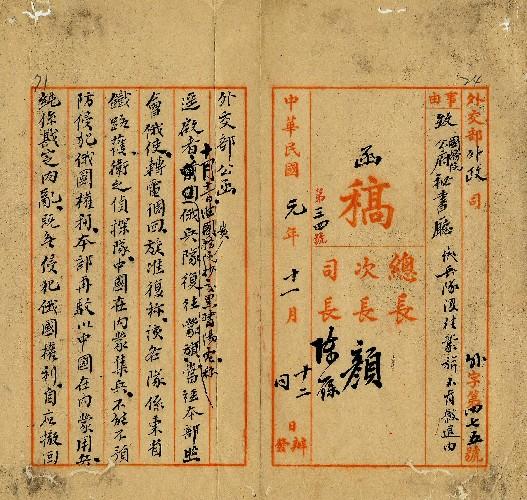 24
外交部外政司
事由
致國務院
公府秘書廳
俄兵隊復往蒙旗不肯撤退由
外字第四七五號
函
稿
第三四號
總長
次長 顏
司長 陳籙
中華民國元年十一月十二日
日辦
發
21
外交部公函
逕啟者
十月
俄兵隊復往蒙旗當經本部照
會俄使轉電調回旋准復稱該各隊係東省
鐵路護衛之偵探隊中國在內蒙集兵不能不預
防侵犯俄國權利本部再駁以中國在內蒙用兵
純係戡定內亂既無侵犯俄國權利自應撤回